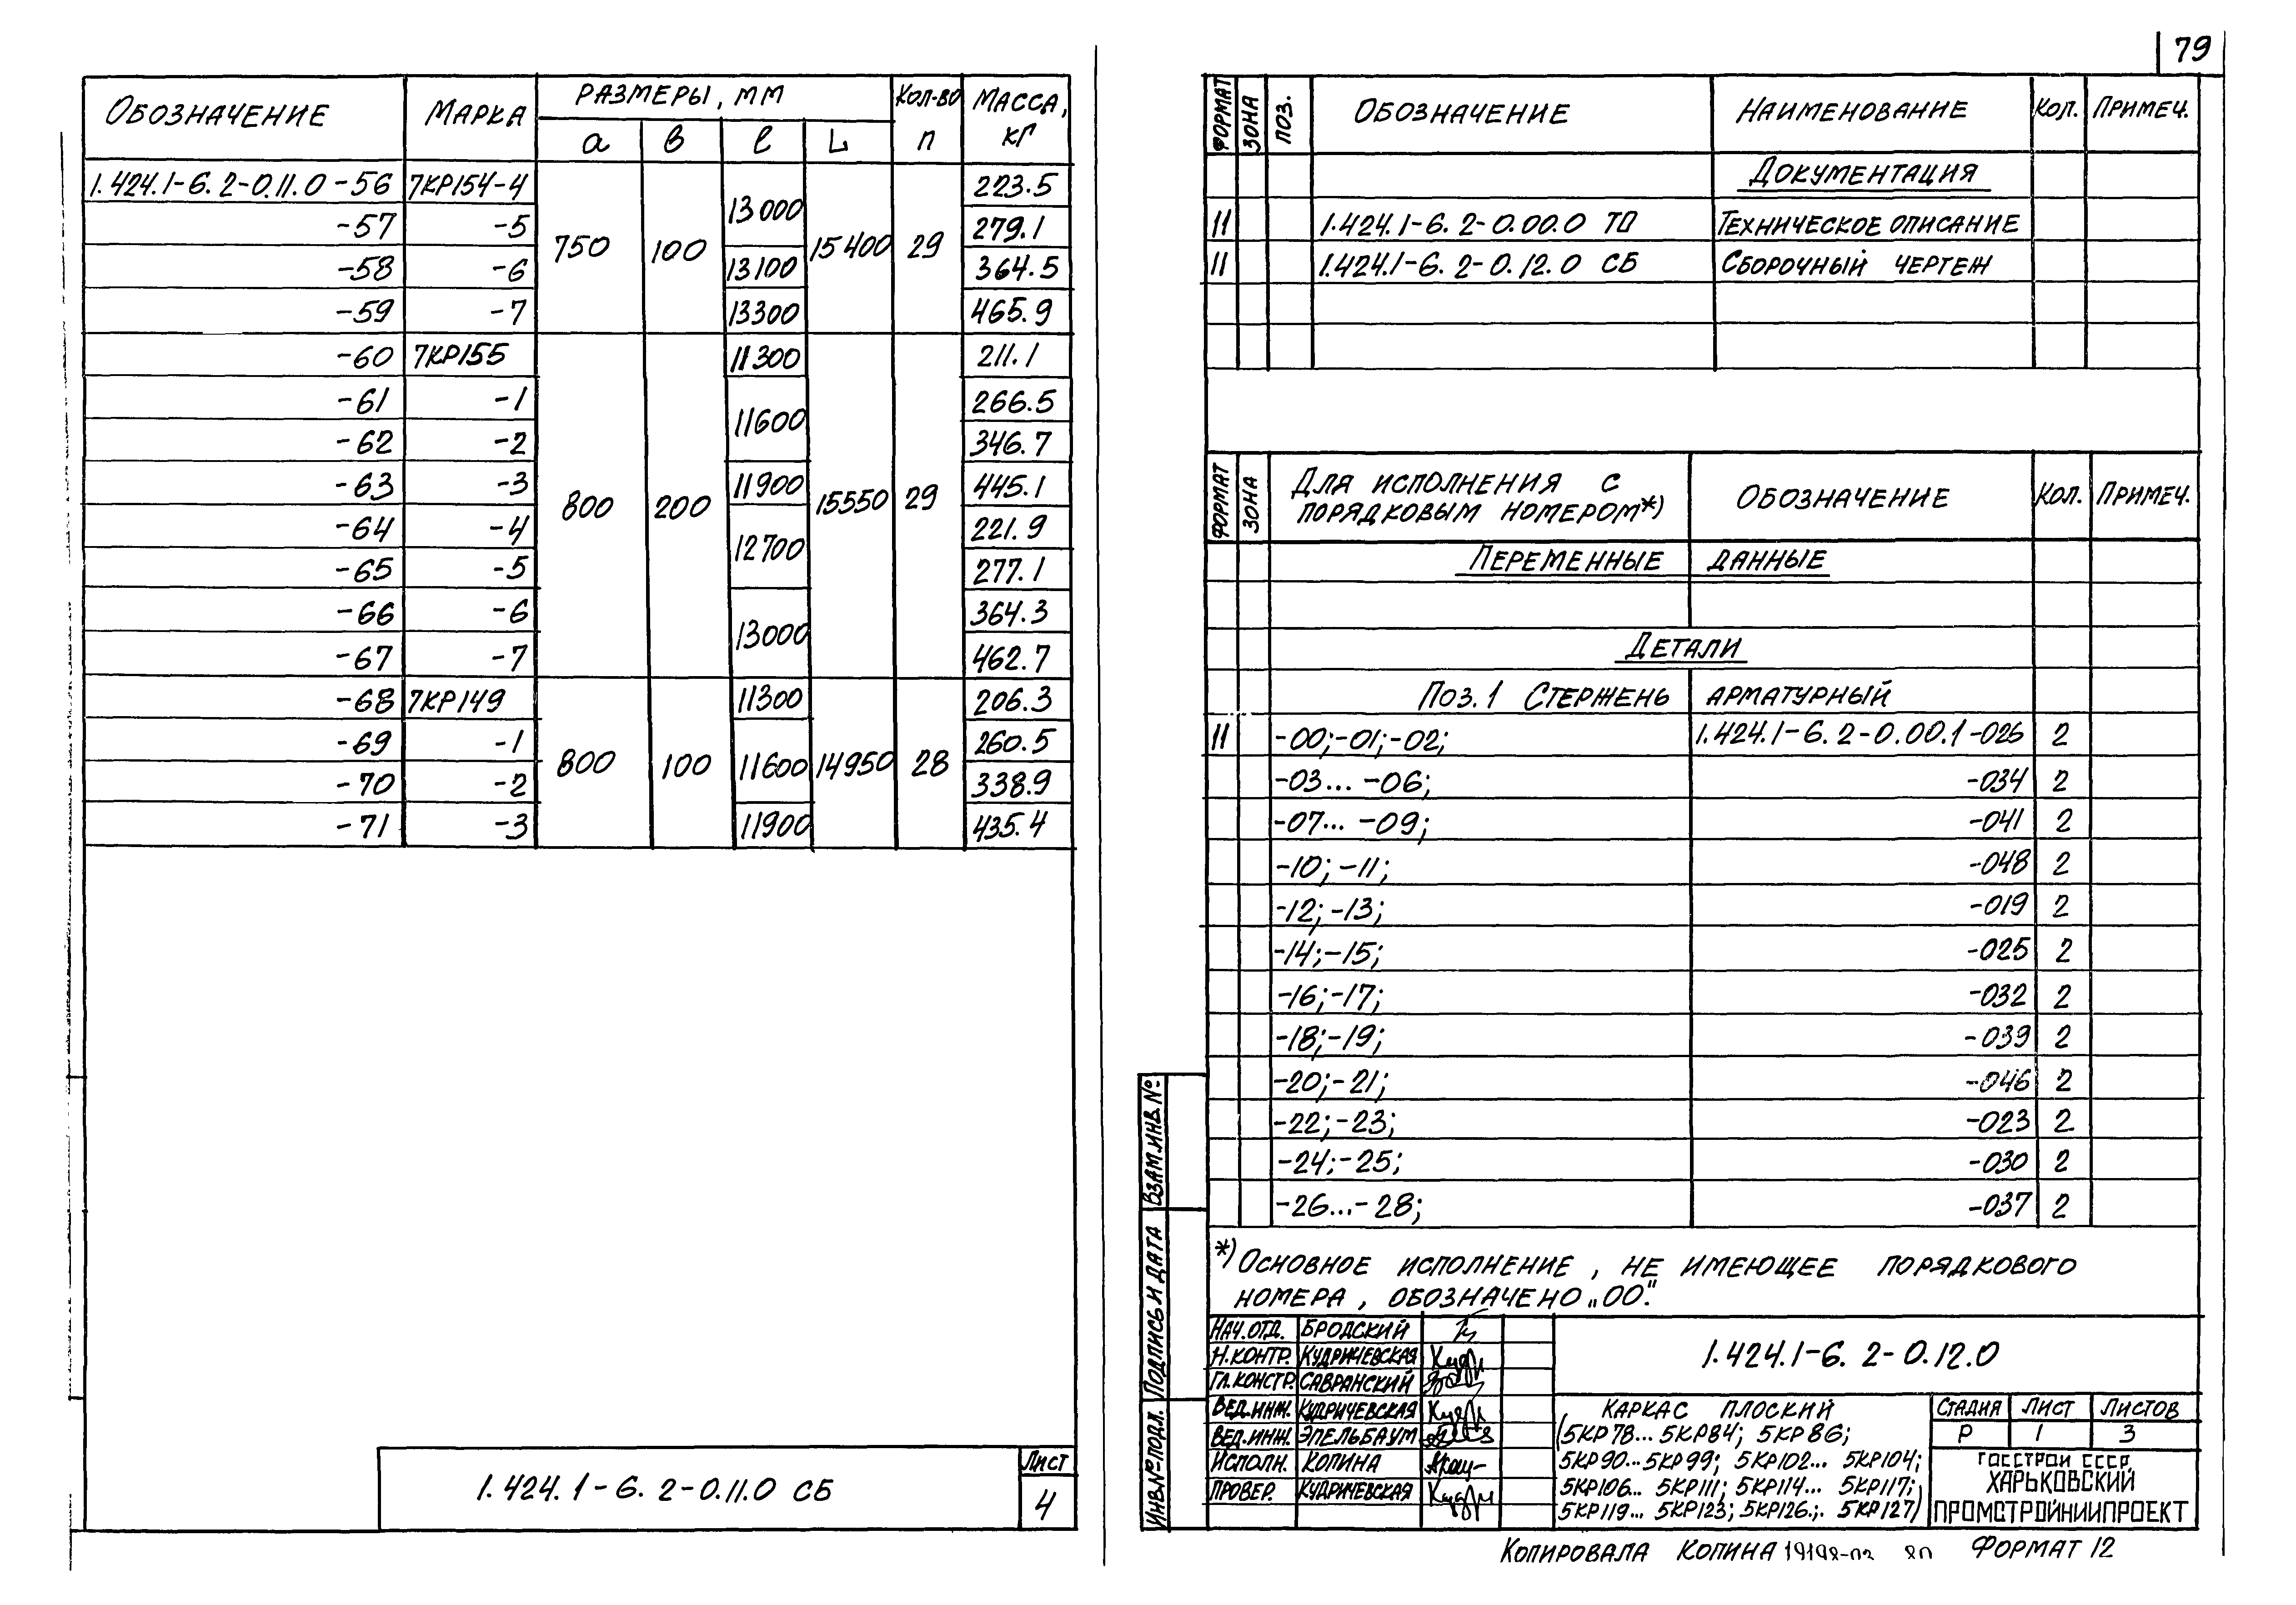 79
ОБОЗНАЧЕНИЕ МАРКА РАЗМЕРЫ, ММ КОЛ-ВО МАССА, КГ
a в ℓ L n
1.424.1-6.2-0.11.0 -56 7КР154-4 750 100 13000 15400 29 223.5
-57 -5 279.1
-58 -6 13100 364.5
-59 -7 13300 465.9
-60 7КР155 800 200 11300 15550 29 211.1
-61 -1 11600 266.5
-62 -2 346.7
-63 -3 11900 445.1
-64 -4 12700 221.9
-65 -5 277.1
-66 -6 13000 364.3
-67 -7 462.7
-68 7КР149 800 100 11300 14950 28 206.3
-69 -1 11600 260.5
-70 -2 338.9
-71 -3 11900 435.4
1.424.1-6.2-0.11.0 СБ
ЛИСТ
4
ФОРМАТ ЗОНА ПОЗ. ОБОЗНАЧЕНИЕ НАИМЕНОВАНИЕ КОЛ. ПРИМЕЧ.
ДОКУМЕНТАЦИЯ
11 1.424.1-6.2-0.00.0 ТО ТЕХНИЧЕСКОЕ ОПИСАНИЕ
11 1.424.1-6.2-0.12.0 СБ СБОРОЧНЫЙ ЧЕРТЕЖ
ФОРМАТ ЗОНА ДЛЯ ИСПОЛНЕНИЯ С ПОРЯДКОВЫМ НОМЕРОМ*) ОБОЗНАЧЕНИЕ КОЛ. ПРИМЕЧ.
ПЕРЕМЕННЫЕ ДАННЫЕ
ДЕТАЛИ
ПОЗ.1 СТЕРЖЕНЬ АРМАТУРНЫЙ
11 -00;-01;-02; 1.424.1-6.2-0.00.1-026 2
-03... -06; -034 2
-07... -09; -041 2
-10; -11; -048 2
-12; -13; -019 2
-14;-15; -025 2
-16;-17; -032 2
-18;-19; -039 2
-20;-21; -046 2
-22;-23; -023 2
-24;-25; -030 2
-26...-28; -037 2
*) ОСНОВНОЕ ИСПОЛНЕНИЕ, НЕ ИМЕЮЩЕЕ ПОРЯДКОВОГО
НОМЕРА, ОБОЗНАЧЕНО „00".
ВЗАМ.ИНВ.№
ПОДПИСЬ И ДАТА
ИНВ.№ ПОДЛ.
НАЧ.ОТД. БРОДСКИЙ
Н.КОНТР. КУДРИЧЕВСКАЯ
ГЛ.КОНСТР. САВРАНСКИЙ
ВЕД.ИНЖ. КУДРИЧЕВСКАЯ
ВЕД.ИНЖ. ЭПЕЛЬБАУМ
ИСПОЛН. КОПИНА
ПРОВЕР. КУДРИЧЕВСКАЯ
1.424.1-6.2-0.12.0
КАРКАС ПЛОСКИЙ
(5КР78... 5КР84; 5КР86;
5КР90...5КР99; 5КР102... 5КР104;
5КР106... 5КР111; 5КР114... 5КР117;
5КР119... 5КР123; 5КР126.;. 5КР127)
СТАДИЯ ЛИСТ ЛИСТОВ
Р 1 3
ГОССТРОЙ СССР
ХАРЬКОВСКИЙ
ПРОМСТРОЙНИИПРОЕКТ
КОПИРОВАЛА КОПИНА 19198-03 80 ФОРМАТ 12